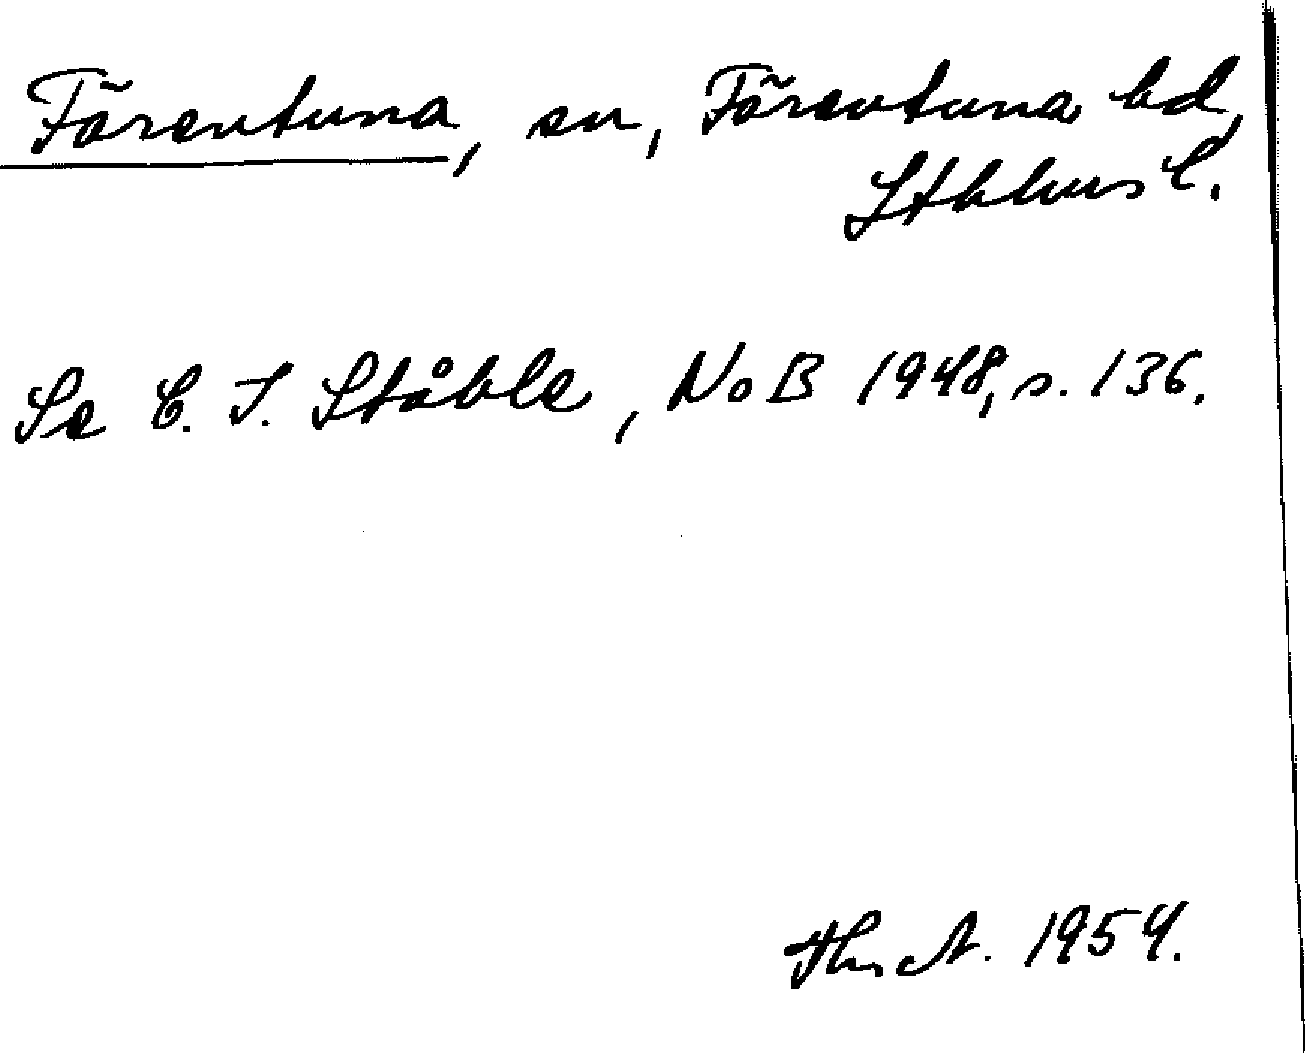 Färentuna, sn, Färentuna hd,
Sthlms l.
Se C. I. Ståhle, NoB 1948, s. 136.
Thr A. 1954.